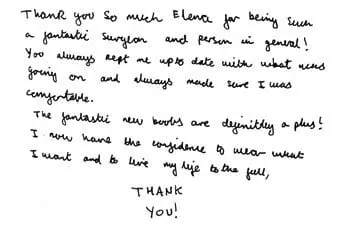 Thank you so much Elena for being such
a fantastic surgeon and person in general!
You always kept me up to date with what was
going on and always made sure I was
comfortable.
The fantastic new boobs are definitley a plus!
I now have the confidence to wear what
I want and to live my life to the full,
THANK
YOU!